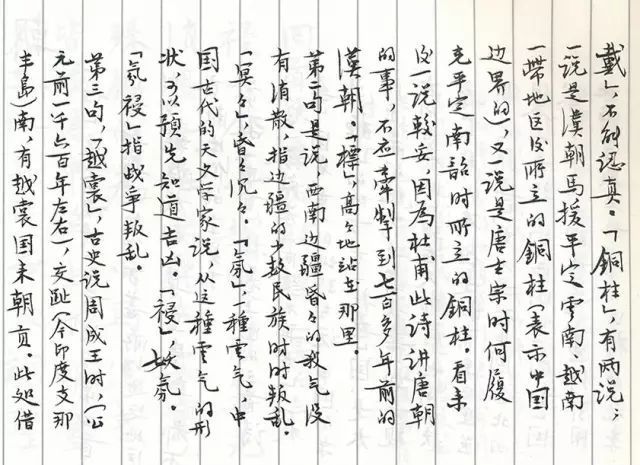 戴」，不能認真。「銅柱」，有两説，
一説是漢朝馬援平定雲南、越南
一帶地区后所立的銅柱（表示中国
边界的），又一説是唐玄宗时何履
光平定南詔时所立的銅柱。看来
后一説較妥，因為杜甫此诗讲唐朝
的事，不应牽掣到七百多年前的
漢朝。「標」，高々地站在那里。
第二句是说，西南边疆昏々的战气没
有消散，指边疆的少数民族时时叛乱。
「冥々」，昏々沉々。「氛」，一種雲气，中
国古代的天文学家说，从这種雲气的形
状，可以预先知道吉凶。「祲」，妖氛。
「氛祲」指战争叛乱。
第三句，「越裳」，古史说周成王时，（公
元前一千六百年左右），交趾（今印度支那
半島）南，有越裳国来朝貢。此处借